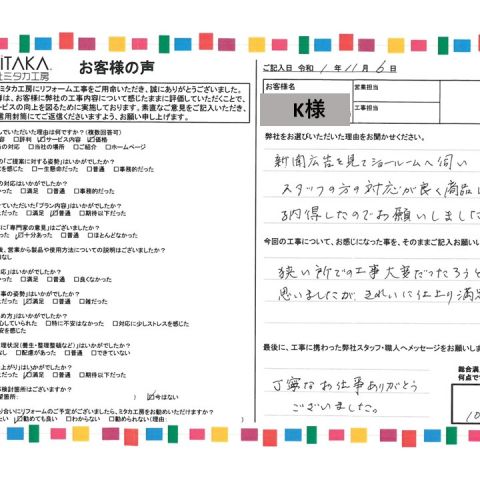 ITAKA.
ミタカ工房
お客様の声
ミタカ工房にリフォーム工事をご用命いただき、誠にありがとうございました。
お客様に弊社の工事内容について感じたままに評価していただくことで、
ービスの向上を図るために実施しております。素直なご意見をご記入いただき、
信用封筒にてご返信くださいますよう、お願い申し上げます。
していただいた理由は何ですか?(複数回答可)
□評判 ☑サービス内容 ☑価格
の対応 □当社の場所 □ご紹介 □ホームページ
の「ご提案に対する姿勢」はいかがでしたか?
を感じた □一生懸命だった □普通 □事務的だった
の対応はいかがでしたか?
かった □満足 □普通 □事務的だった
ていただいた「プラン内容」はいかがでしたか?
だった ☑満足 □普通 □期待以下だった
に「専門家の意見」はございましたか?
☑十分あった □普通 □ほとんどなかった
後、営業から製品や使用方法についての説明はございましたか?
応」はいかがでしたか?
だった ☑満足 □普通 □良くなかった
事の姿勢」はいかがでしたか?
だった ☑満足 □普通 □雑だった
め方」はいかがでしたか?
心していられた □特に不安はなかった □対応に少しストレスを感じた
安を感じた
理状況(養生・整理整頓など)はいかがでしたか?
なし □配慮があった □できていない
上がり」はいかがでしたか?
だった ☑満足 □普通 □期待以下だった
検討箇所はございますか?
望箇所: ) ☑今はない
り合いにリフォームのご予定がございましたら、ミタカ工房をお勧めいただけますか?
たい ☑勧めても良い □わからない □勧められない(理由: )
ご記入日 令和 1年 11月 6日
お客様名
K様
営業担当
工事担当
弊社をお選びいただいた理由をお聞かせください。
新聞広告を見てショールームへ伺い
スタッフの方の対応が良く商品に
納得したのでお願いしました
今回の工事について、お感じになった事を、そのままご記入お願い
狭い所での工事大変だったろうと
思いましたが、きれいに仕上り満足
最後に、工事に携わった弊社スタッフ・職人へメッセージをお願いしま
丁寧なお仕事ありがとう
ございました。
総合満
何点で
10